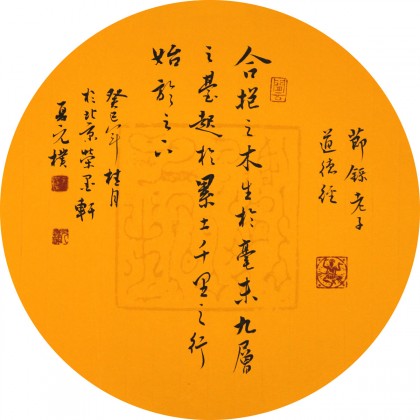 節錄老子
道德經
合抱之木生於毫末九層
之臺起於累土千里之行
始於足下
癸巳年桂月
於北京榮墨軒
夏元樸